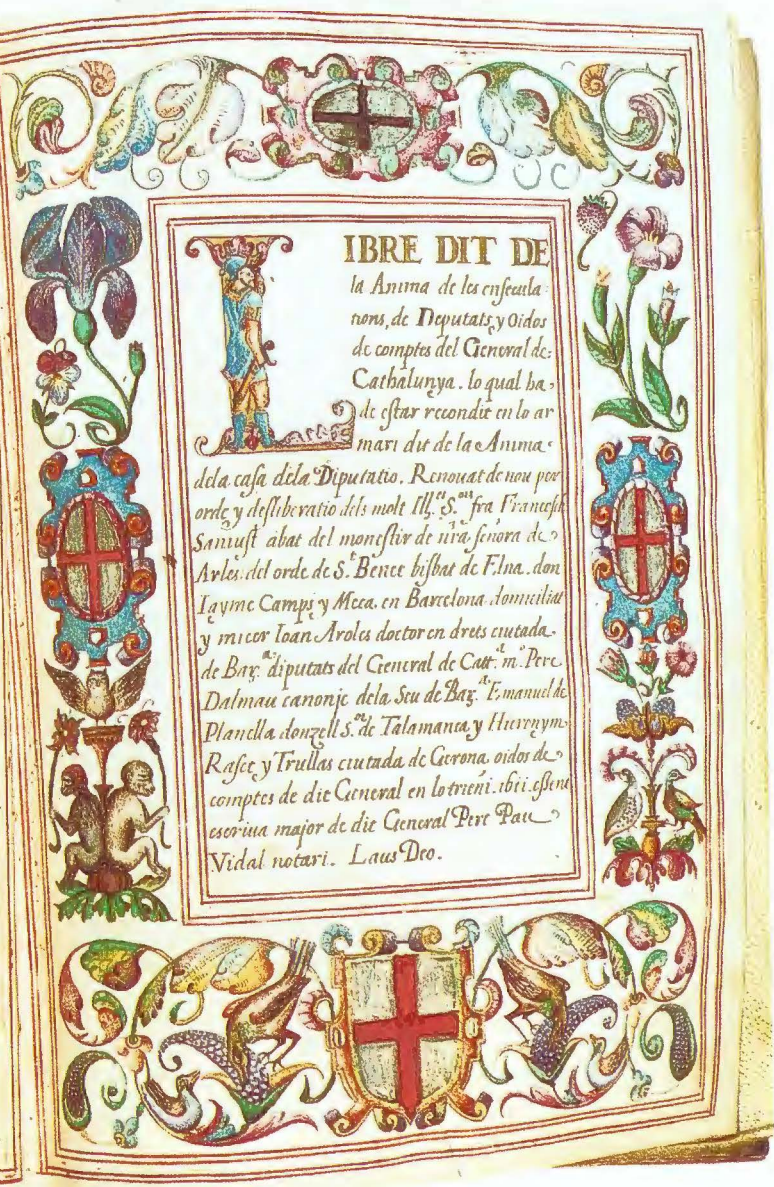 LIBRE DIT DE
la Anima de les ensecula:
tions, de Deputats, y Oidos
de comptes del General de:
Cathalunya. lo qual ha,
de estar recondit en lo ar
mari dit de la Anima
dela casa dela Diputatio. Renouat de nou per
orde, y desliberatio dels molt Ill.s S.ors fra Francesch
Saniust abat del monestir de nr̃a señora de
Arles. del orde de S.t Benet bisbat de Elna. don
Iayme Camps y Meca. en Barcelona domiciliat
y micer Ioan Aroles doctor en drets ciutada
de Bar.na diputats del General de Catt.a m.o Pere
Dalmau canonje dela Seu de Bar.na F. manuel de
Planella donzell S.or de Talamanca, y Hieronym
Raset y Trullas ciutada de Gerona oidos de
comptes de dit General en lo trieni. essent
escriua major de dit General Pere Pau
Vidal notari. Laus Deo.